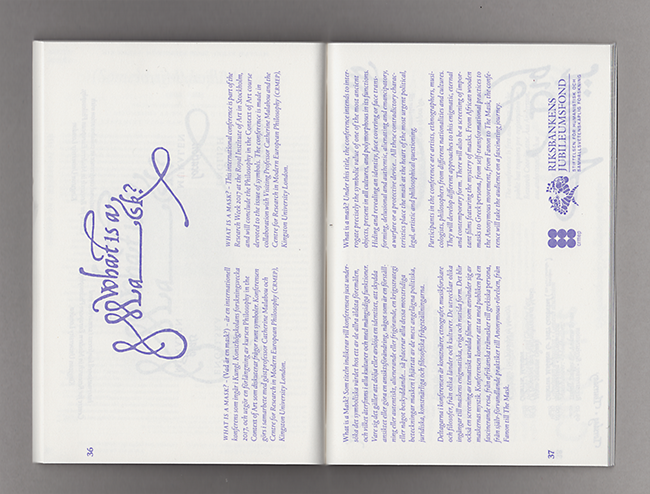 36
What is a
Mask?
WHAT IS A MASK? – (Vad är en mask?) – är en internationell
konferens som ingår i Kungl. Konsthögskolans forskningsvecka
2017, och utgör en förlängning av kursen Philosophy in the
Context of Art som diskuterar frågor runt symboler. Konferensen
görs i samarbete med gästprofessor Catherine Malabou och
Centre for Research in Modern European Philosophy (CRMEP),
Kingston University London.
WHAT IS A MASK? – This international conference is part of the
Research Week 2017 at the Royal Institute of Art in Stockholm,
and will conclude the Philosophy in the Context of Art course
devoted to the issue of symbols. The conference is made in
collaboration with Visiting Professor Catherine Malabou and the
Centre for Research in Modern European Philosophy (CRMEP),
Kingston University London.
What is a Mask? Som titeln indikerar vill konferensen just under-
söka det symboliska värdet hos ett av de allra äldsta föremålen,
och vilket återfinns i alla kulturer och med mångtydiga funktioner.
Vare sig det gäller att dölja eller avslöja en identitet, att skydda
ansiktet eller göra en ansiktsförändring, något som är en förställ-
ning eller autentiskt, alienerande eller frigörande, en krigsstrategi
eller något beskyddande – så placerar alla dessa motstridiga
beteckningar masken i hjärtat av de mest angelägna politiska,
juridiska, konstnärliga och filosofiska frågeställningarna.
Deltagarna i konferensen är konstnärer, etnografer, musikforskare
och filosofer, från olika länder och kulturer. De utvecklar olika
ingångar till maskens enigmatiska, eviga och nutida form. Det blir
också en screening av tematiskt utvalda filmer som använder sig av
maskernas mystik. Konferensen kommer att ta med publiken på en
fascinerande resa, från afrikanska trämasker till grekiska persona,
från själv-förvandlande praktiker till Anonymous-rörelsen, från
Fanon till The Mask.
What is a mask? Under this title, the conference intends to inter-
rogate precisely the symbolic value of one of the most ancient
objects, present in all cultures, and polymorphous in its functions.
Hiding and revealing an identity, face covering or face trans-
forming, delusional and authentic, alienating and emancipatory,
a warfare or a protective device… All these contradictory charac-
teristics place the mask at the heart of the most urgent political,
legal, artistic and philosophical questioning.
Participants in the conference are artists, ethnographers, musi-
cologists, philosophers from different nationalities and cultures.
They will develop different approaches to this enigmatic, eternal
and contemporary form. There will also be a screening of impor-
tant films featuring the mystery of masks. From African wooden
masks to Greek persona, from self transformational practices to
the Anonymous movement, from Fanon to The Mask, the confe-
rence will take the audience on a fascinating journey.
crmep
RIKSBANKENS
JUBILEUMSFOND
STIFTELSEN FÖR HUMANISTISK OCH
SAMHÄLLSVETENSKAPLIG FORSKNING
37